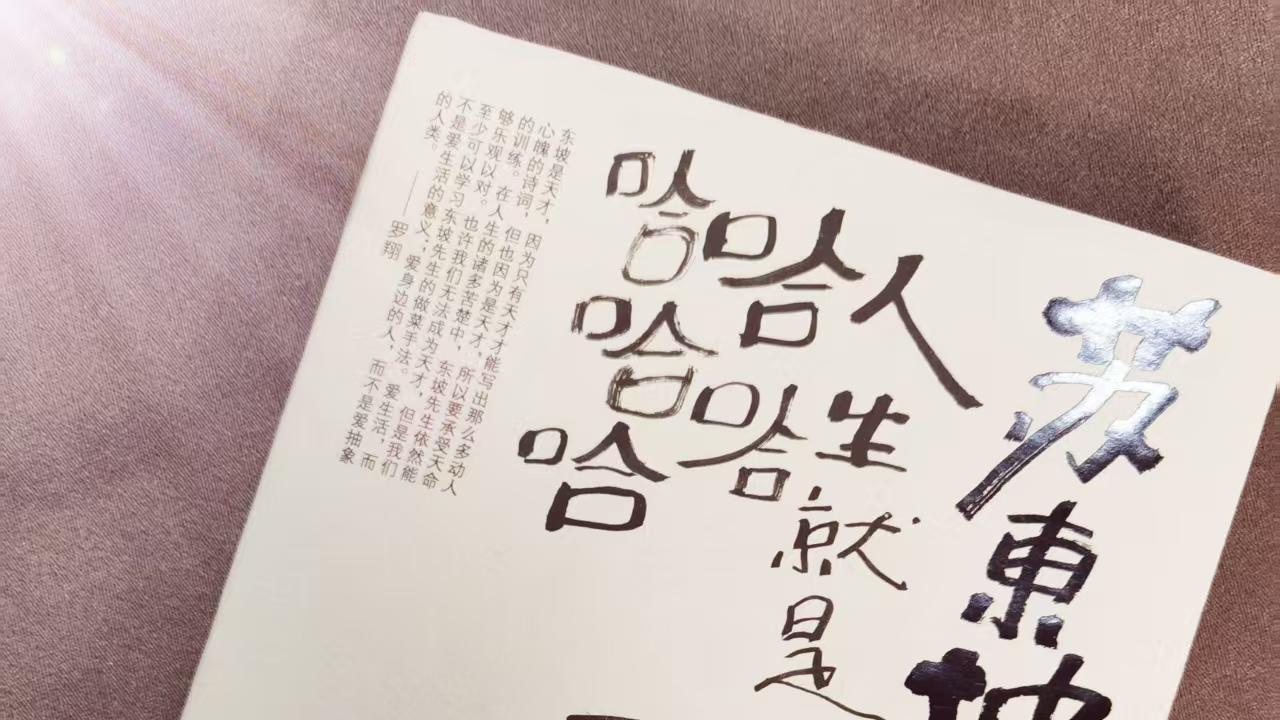 苏東坡
人生就是
哈哈
哈哈哈
东坡是天才,因为只有天才才能写出那么多动人
心魄的诗词,但也因为是天才,所以要承受天命
的训练。在人生的诸多苦楚中,东坡先生依然能
够乐观以对。也许我们无法成为天才,但是我们
至少可以学习东坡先生的做菜手法。爱生活,而
不是爱生活的意义;爱身边的人,而不是爱抽象
的人类。
——罗翔